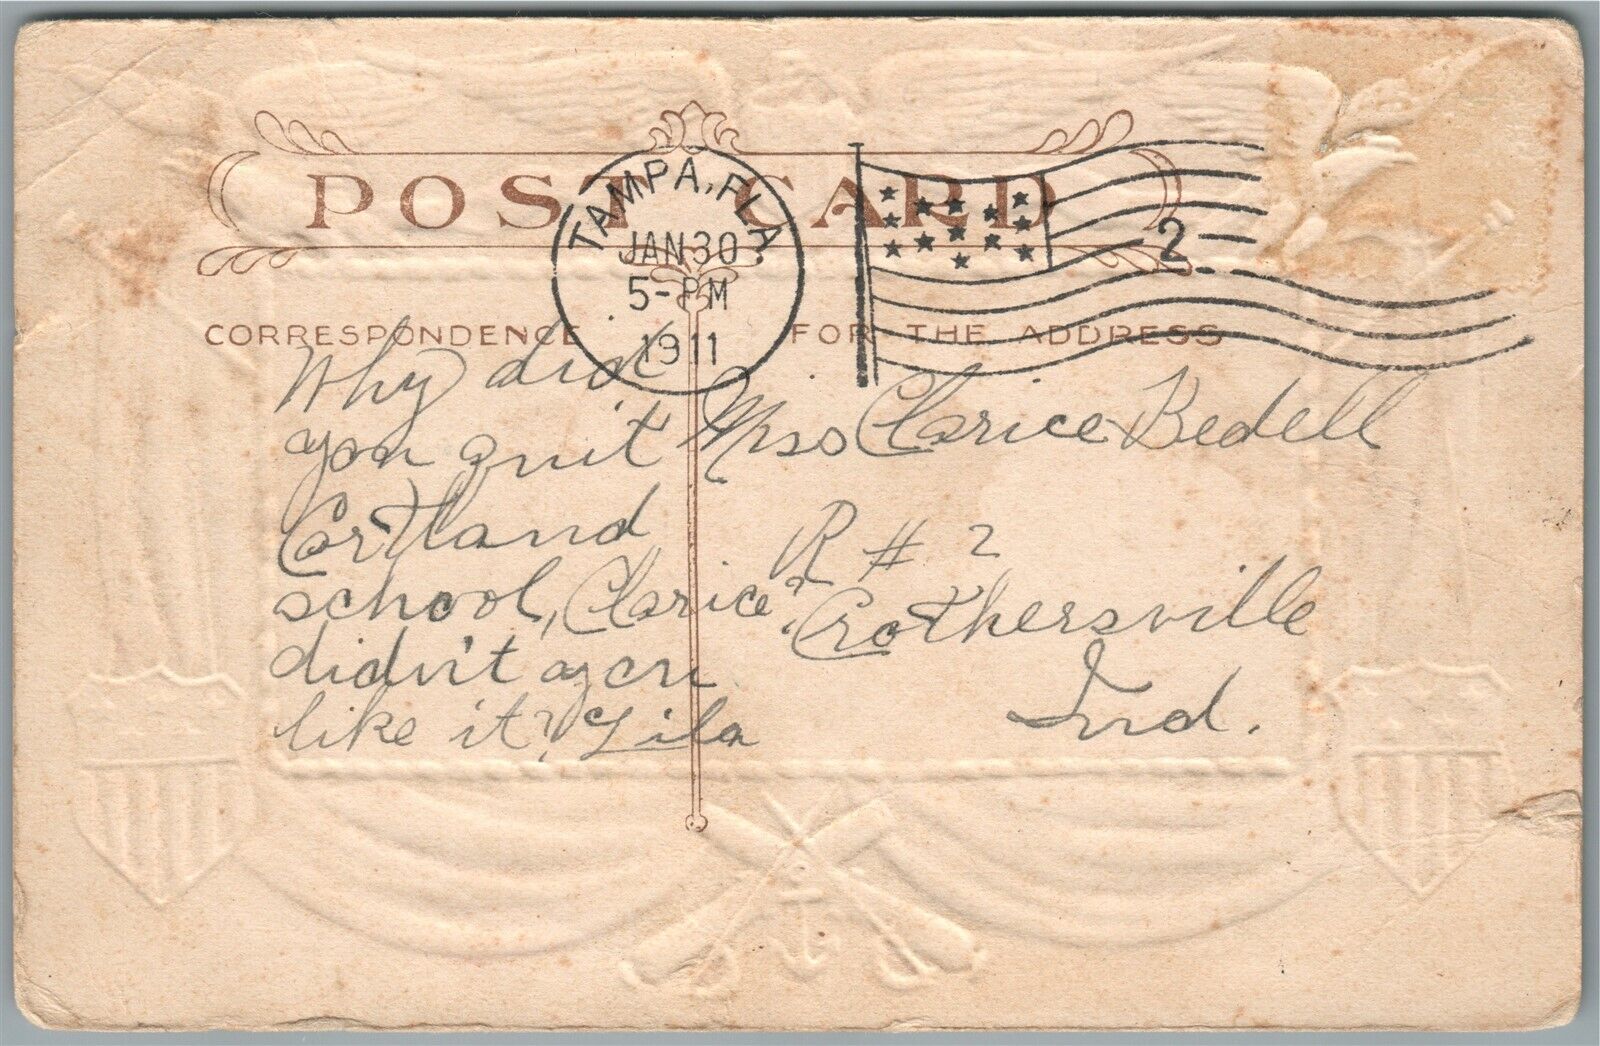 POST CARD
TAMPA, FLA.
JAN 30
5-PM
1911
2
CORRESPONDENCE
FOR THE ADDRESS
Why did
you quit
Cortland
school, Clarice?
didn't you
like it? Lila
Miss Clarice Bedell
R # 2
Crothersville
Ind.